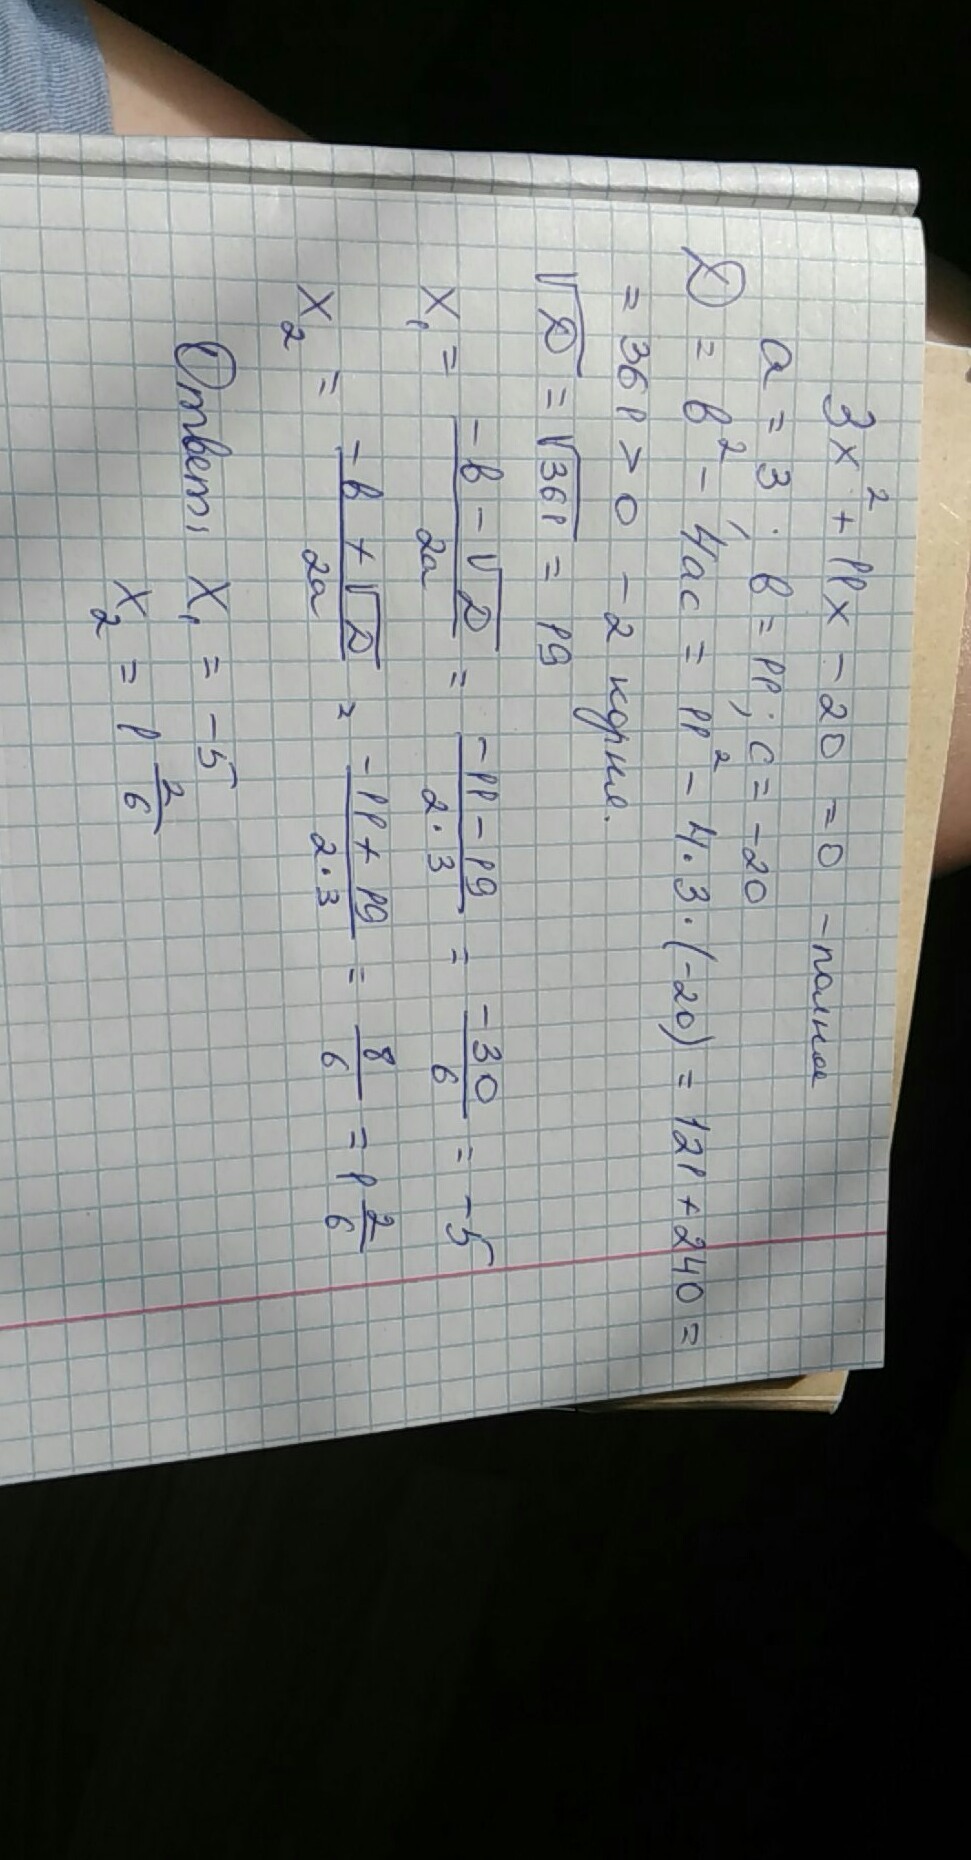 3x² + 11x - 20 = 0 - полное
a = 3; b = 11; c = -20
D = b² - 4ac = 11² - 4·3·(-20) = 121 + 240 =
= 361 > 0 - 2 корня.
√D = √361 = 19
x₁ = (-b - √D)/(2a) = (-11 - 19)/(2·3) = -30/6 = -5
x₂ = (-b + √D)/(2a) = (-11 + 19)/(2·3) = 8/6 = 1 2/6
Ответ: x₁ = -5
x₂ = 1 2/6